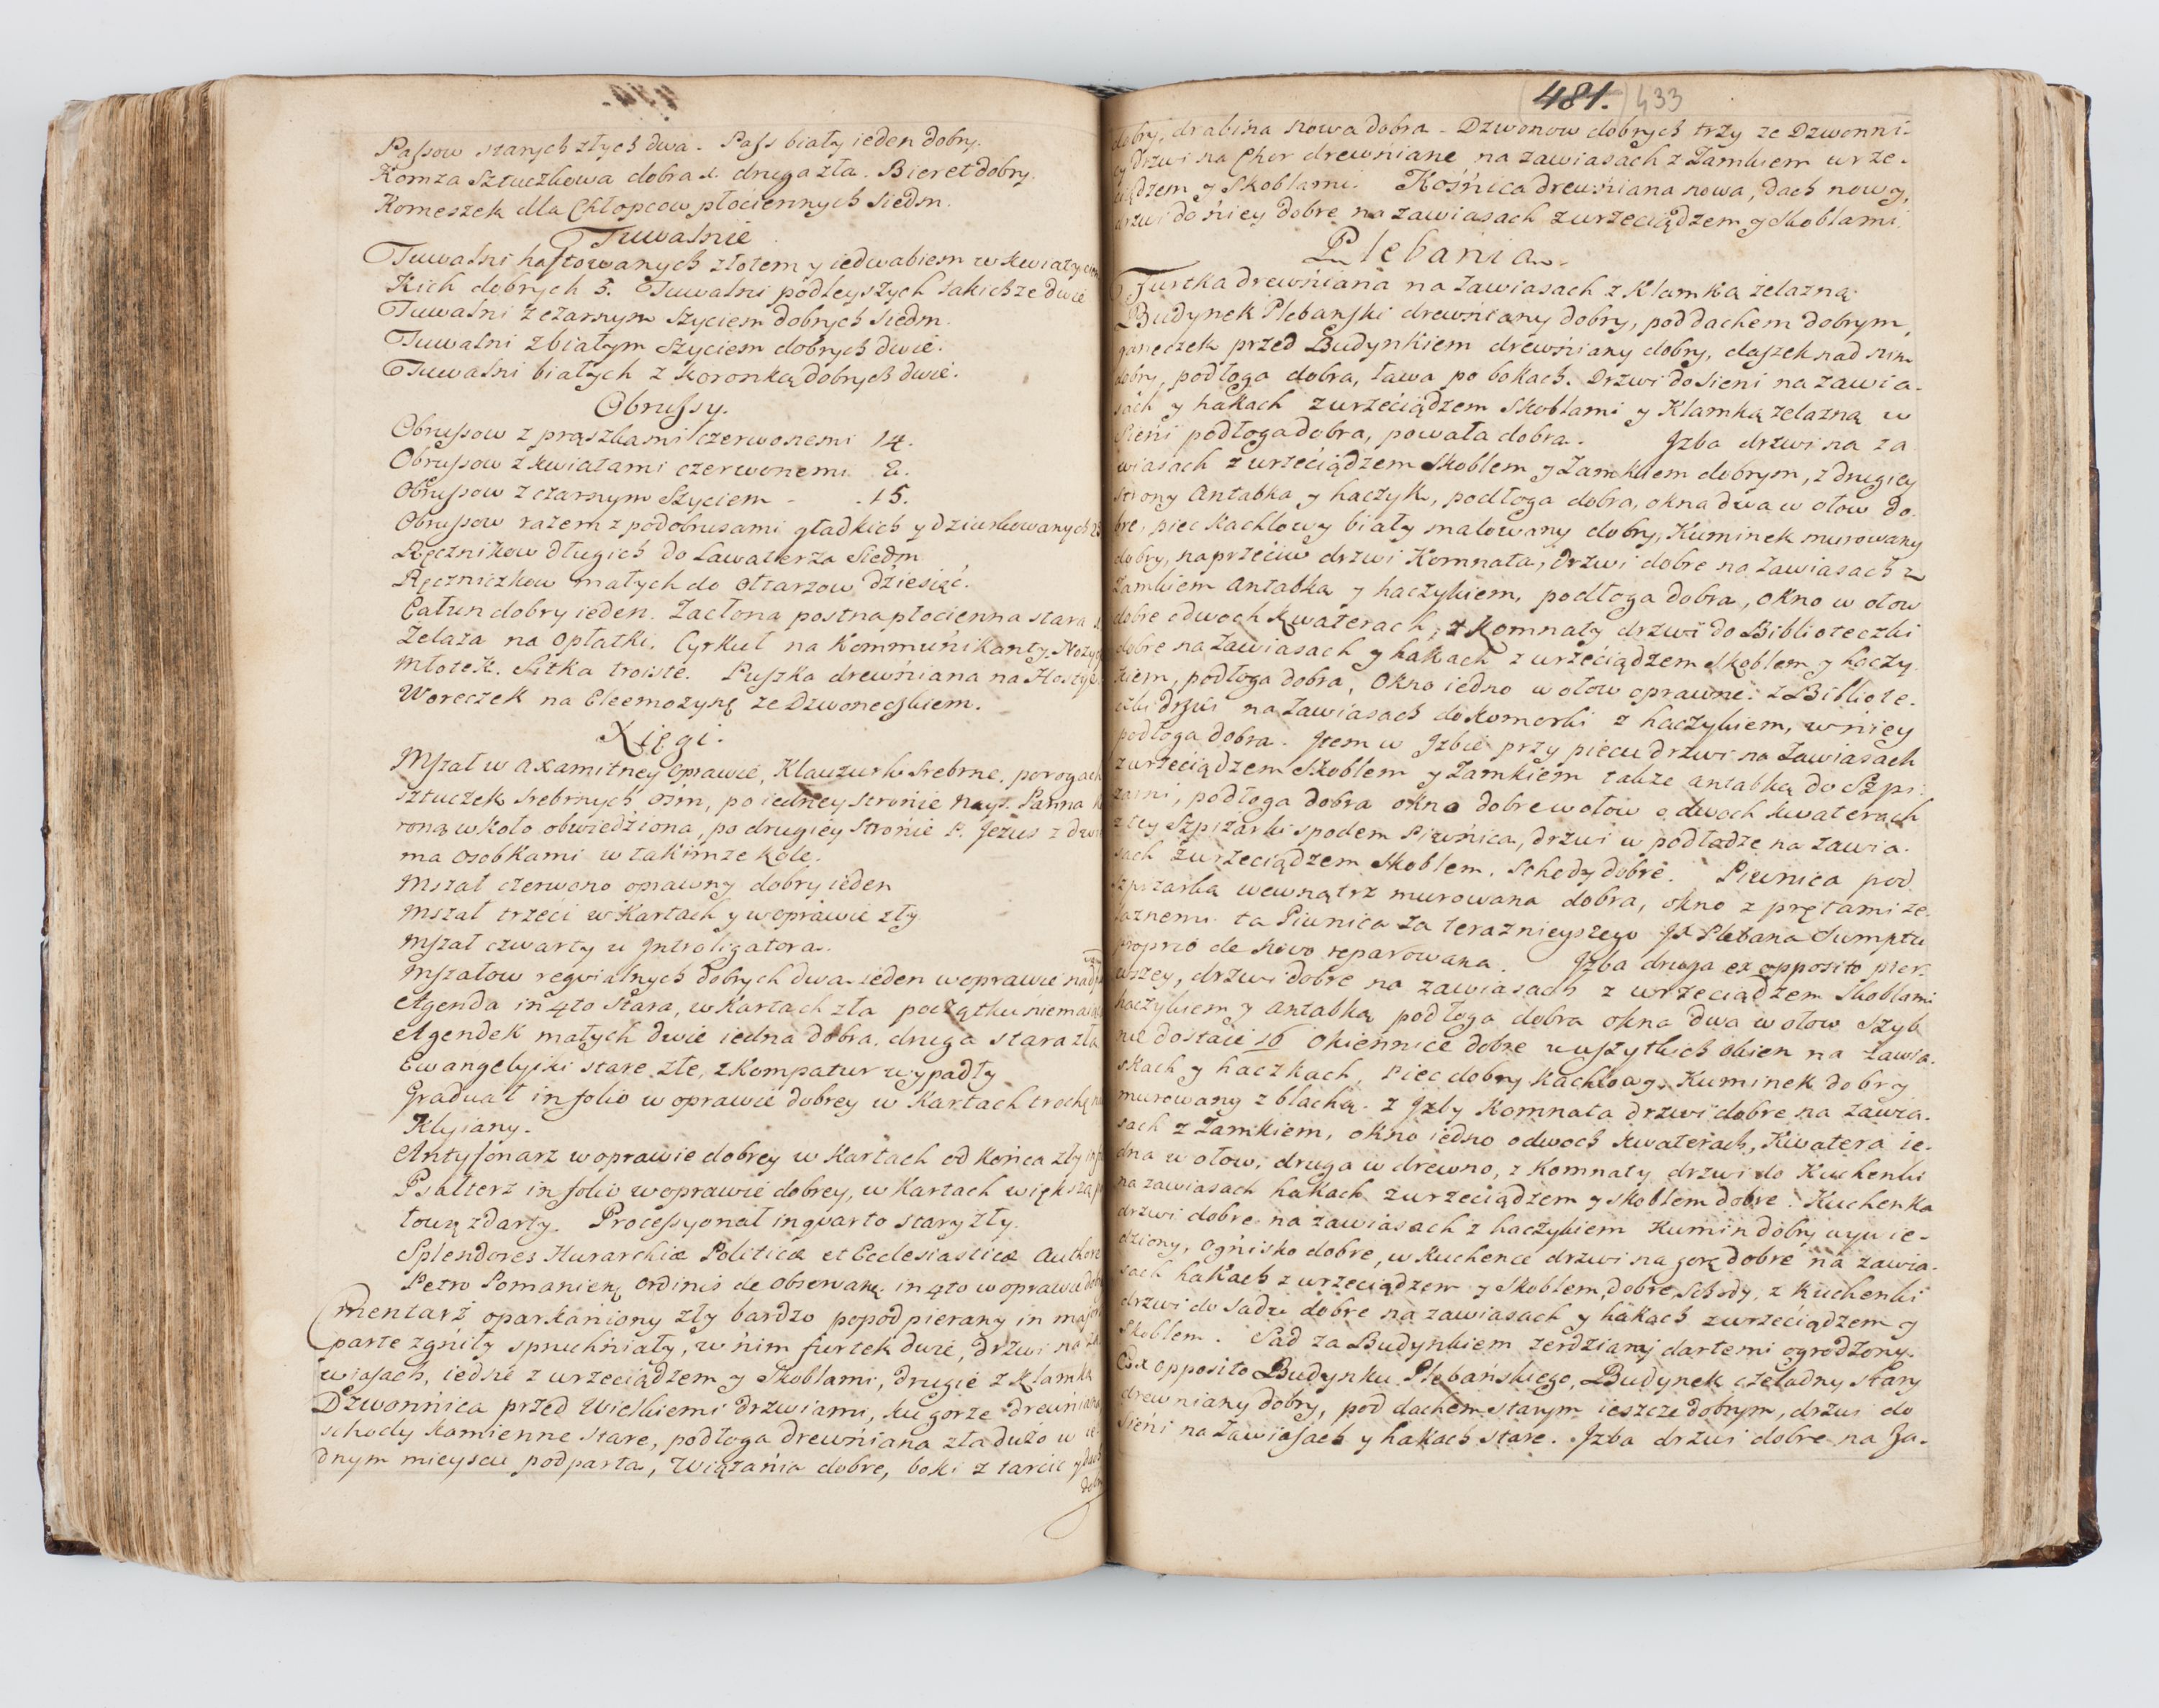 Passow starych złych dwa. Pass biały ieden dobry.
Komza Sztuczkowa dobra 1. druga zła. Biret dobry.
Komeszek dla Chłopcow płociennych siedm.
Tuwalnie
Tuwalni haftowanych złotem y iedwabiem w kwiaty
Kich dobrych 5. Tuwalni podleyszych takichze dwie
Tuwalni z czarnym szyciem dobrych siedm.
Tuwalni z białym szyciem dobrych dwie.
Tuwalni białych z koronką dobrych dwie.
Obrussy.
Obrussow z prążkami czerwonemi 14.
Obrussow z kwiatami czerwonemi 2.
Obrussow z czarnym szyciem - . 15.
Obrussow razem z podobrusami gładkich y dziurkowanych
Ręcznikow długich do Lawaterza siedm
Ręczniczkow małych do Ołtarzow dziesięć.
Całun dobry ieden. Zasłona postna płocienna stara
Żelaza na Opłatki. Cyrkuł na Kommunikanty.
Młotek. Sitka troiste. Puszka drewniana na Hostye
Woreczek na Eleemozynę ze Dzwoneczkiem.
Xięgi.
Mszał w axamitney Oprawie, Klauzurki srebrne, po rogach
sztuczek srebrnych ośm, po iedney stronie Nays. Panna
roną w koło obwiedziona, po drugiey stronie P. Jezus z
ma osobkami w takimze kole.
Mszał czerwono oprawny dobry ieden
Mszał trzeci w Kartach y w oprawie zły
Mszał czwarty u Introligatora.
Mszałow reqvialnych dobrych dwa ieden w oprawie
Agenda in 4to stara, w Kartach zła początku niema
Agendek małych dwie iedna dobra, druga stara zła
Ewangelyiki stare złe, z Kompatur wypadły
Graduał in folio w oprawie dobrey w Kartach trochę
Klyiany.
Antyfonarz w oprawie dobrey w Kartach od końca zły
Psałterz in folio w oprawie dobrey, w Kartach większą
łową zdarty. Processyonał in qvarto stary zły.
Splendores Hierarchiæ Politicæ et Ecclesiasticæ Authore
Petro Pomanienę Ordinis de Observanę. in 4to w oprawie
Cmentarz oparkaniony zły bardzo popodpierany in majori
parte zgniły spruchniały, w nim furtek dwie, drzwi na
wiasach, iedne z wrzeciądzem y skoblami, drugie z klamką
Dzwonnica przed Wielkiemi drzwiami, ku gorze drewniana
schody kamienne stare, podłoga drewniana zła dużo w ie
dnym mieyscu podparta, Wiązania dobre, boki z tarcic y
481. 433
dobry, drabina nowa dobra. Dzwonow dobrych trzy ze Dzwonni-
cy drzwi na Chor drewniane na zawiasach z Zamkiem wrze-
ciądzem y skoblami. Kośnica drewniana nowa, dach nowy,
drzwi do niey dobre na zawiasach z wrzeciądzem y skoblami.
Plebania.
Furtka drewniana na zawiasach z Klamką żelazną.
Budynek Plebański drewniany dobry, pod dachem dobrym,
ganeczek przed Budynkiem drewniany dobry, daszek nad nim
dobry, podłoga dobra, ława po bokach. Drzwi do Sieni na zawia-
sach y hakach z wrzeciądzem skoblami y Klamką żelazną w
Sieni podłoga dobra, powała dobra. Izba drzwi na za
wiasach z wrzeciądzem skoblem y Zamkiem dobrym, z drugiey
strony antabka y haczyk, podłoga dobra, okna dwa w ołow do
bre, piec kachlowy biały malowany dobry, Kuminek murowany
dobry, naprzeciw drzwi Komnata, drzwi dobre na zawiasach z
Zamkiem antabką y haczykiem, podłoga dobra, okno w ołow
dobre o dwoch kwaterach, z Komnaty drzwi do Biblioteczki
dobre na zawiasach y hakach z wrzeciądzem skoblem y haczy
kiem, podłoga dobra, Okno iedno w ołow oprawne. z Bibliote-
czki drzwi na zawiasach do komorki z haczykiem, w niey
podłoga dobra. Item w Izbie przy piecu drzwi na zawiasach
z wrzeciądzem skoblem y Zamkiem takze antabką do Szpi-
zarni, podłoga dobra okno dobre w ołow o dwoch kwaterach
z tey Szpizarki spodem Piwnica, drzwi w podłodze na zawia-
sach z wrzeciądzem skoblem. Schody dobre. Piwnica pod
Szpizarką wewnątrz murowana dobra, okno z prętami że-
laznemi ta Piwnica za teraznieyszego JX Plebana Sumptu
proprio de novo reparowana. Izba druga ex opposito pier-
wszey, drzwi dobre na zawiasach z wrzeciądzem skoblami
haczykiem y antabką podłoga dobra okna dwa w ołow szyb
nie dostaie 16 Okiennice dobre u wszytkich okien na zawia-
skach y haczkach, Piec dobry kachlowy. Kuminek dobry
murowany z blachą. z Izby Komnata drzwi dobre na zawia-
sach z Zamkiem, okno iedno o dwoch kwaterach, Kwatera ie-
dna w ołow, druga w drewno, z Komnaty drzwi do Kuchenki
na zawiasach hakach z wrzeciądzem y skoblem dobre. Kuchenka
drzwi dobre na zawiasach z haczykiem Kumin dobry wywie-
dziony, Ognisko dobre, w Kuchence drzwi na gorę dobre na zawia-
sach hakach z wrzeciądzem y skoblem, dobre schody, z Kuchenki
drzwi do Sadu dobre na zawiasach y hakach z wrzeciądzem y
Skoblem. Sad za Budynkiem żerdziami dartemi ogrodzony.
Ex opposito Budynku Plebańskiego, Budynek czeladny stary
drewniany dobry, pod dachem starym ieszcze dobrym, drzwi do
Sieni na zawiasach y hakach stare. Izba drzwi dobre na Za-